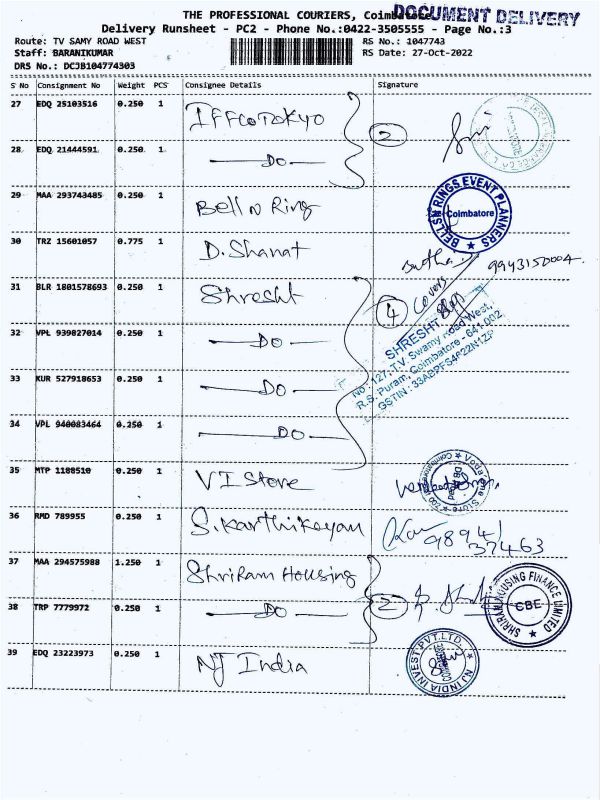 THE PROFESSIONAL COURIERS, Coimbatore
DOCUMENT DELIVERY
Delivery Runsheet - PC2 - Phone No.:0422-3505555 - Page No.:3
Route: TV SAMY ROAD WEST RS No.: 1047743
Staff: BARANIKUMAR RS Date: 27-Oct-2022
DRS No.: DCJB104774303
S No Consignment No Weight PCS Consignee Details Signature
27 EDQ 25103516 0.250 1 IFFCOTOKYO
2
28 EDQ 21444591 0.250 1 —DO—
29 MAA 293743485 0.250 1 Bell N Ring
BELLS N RINGS EVENT PLANNERS ★ Coimbatore
30 TRZ 15601057 0.775 1 D. Sharat
9943150004
31 BLR 1801578693 0.250 1 Shresht
4 Covers
SHRESHT
No : 127, T.V. Swamy road West,
R.S. Puram, Coimbatore - 641 002
GSTIN : 33ABPFS4P22N1ZP
32 VPL 939827014 0.250 1 —DO—
33 KUR 527918653 0.250 1 —DO—
34 VPL 940083464 0.250 1 —DO—
35 MTP 1188510 0.250 1 VI Store
36 RMD 789955 0.250 1 S. Karthikeyan
98941
37463
37 MAA 294575988 1.250 1 ShriRam Housing
2
SHRIRAM HOUSING FINANCE LIMITED ★ CBE
38 TRP 7779972 0.250 1 —DO—
39 EDQ 23223973 0.250 1 NJ India
NJ INDIA INVEST PVT. LTD. ★